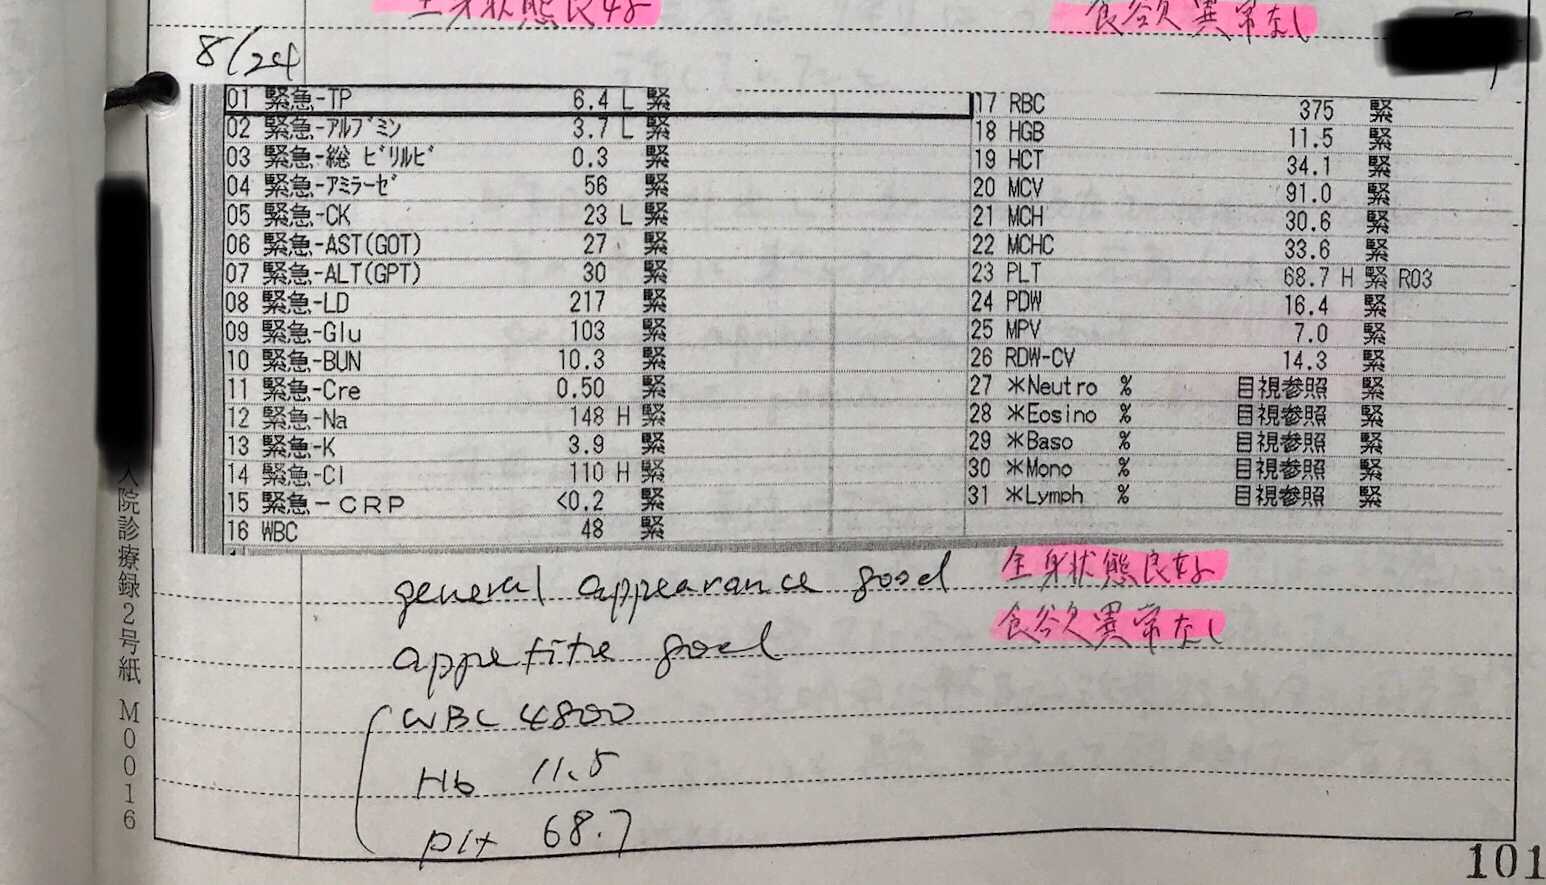 全身状態良好
食欲異常なし
8/24
01 緊急-TP 6.4 L 緊
02 緊急-ｱﾙﾌﾞﾐﾝ 3.7 L 緊
03 緊急-総 ﾋﾞﾘﾙﾋﾞ 0.3 緊
04 緊急-ｱﾐﾗｰｾﾞ 56 緊
05 緊急-CK 23 L 緊
06 緊急-AST(GOT) 27 緊
07 緊急-ALT(GPT) 30 緊
08 緊急-LD 217 緊
09 緊急-Glu 103 緊
10 緊急-BUN 10.3 緊
11 緊急-Cre 0.50 緊
12 緊急-Na 148 H 緊
13 緊急-K 3.9 緊
14 緊急-Cl 110 H 緊
15 緊急－ＣＲＰ <0.2 緊
16 WBC 48 緊
17 RBC 375 緊
18 HGB 11.5 緊
19 HCT 34.1 緊
20 MCV 91.0 緊
21 MCH 30.6 緊
22 MCHC 33.6 緊
23 PLT 68.7 H 緊 R03
24 PDW 16.4 緊
25 MPV 7.0 緊
26 RDW-CV 14.3 緊
27 *Neutro % 目視参照 緊
28 *Eosino % 目視参照 緊
29 *Baso % 目視参照 緊
30 *Mono % 目視参照 緊
31 *Lymph % 目視参照 緊
general appearance good 全身状態良好
appetite good 食欲異常なし
WBC 4800
Hb 11.5
plt 68.7
入院診療録2号紙 M0016
101